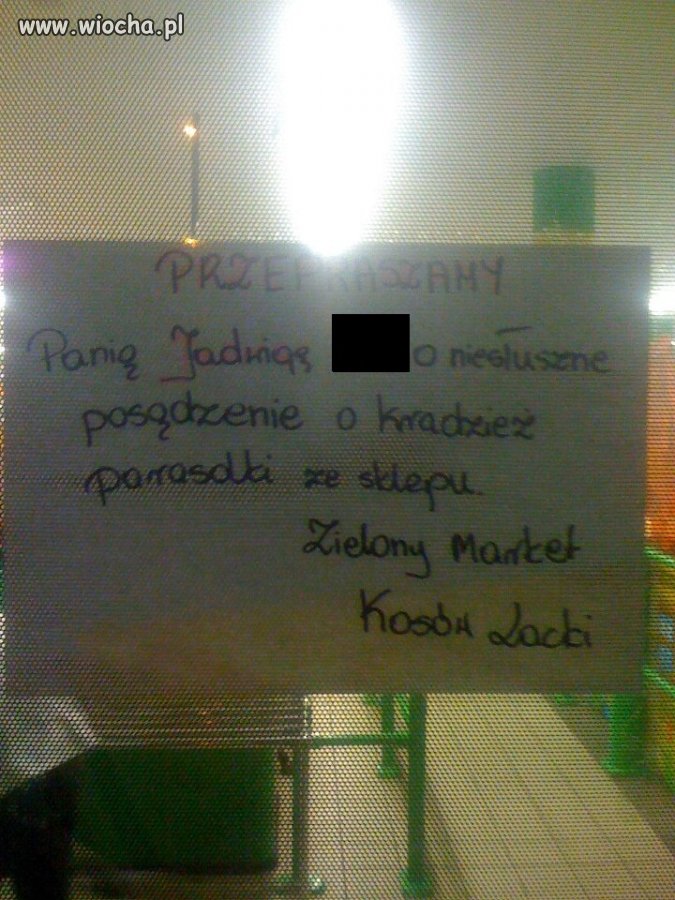 www.wiocha.pl
PRZEPRASZAMY
Panią Jadwigę o niesłuszne
posądzenie o kradzież
parasolki ze sklepu.
Zielony Market
Kosów Lacki